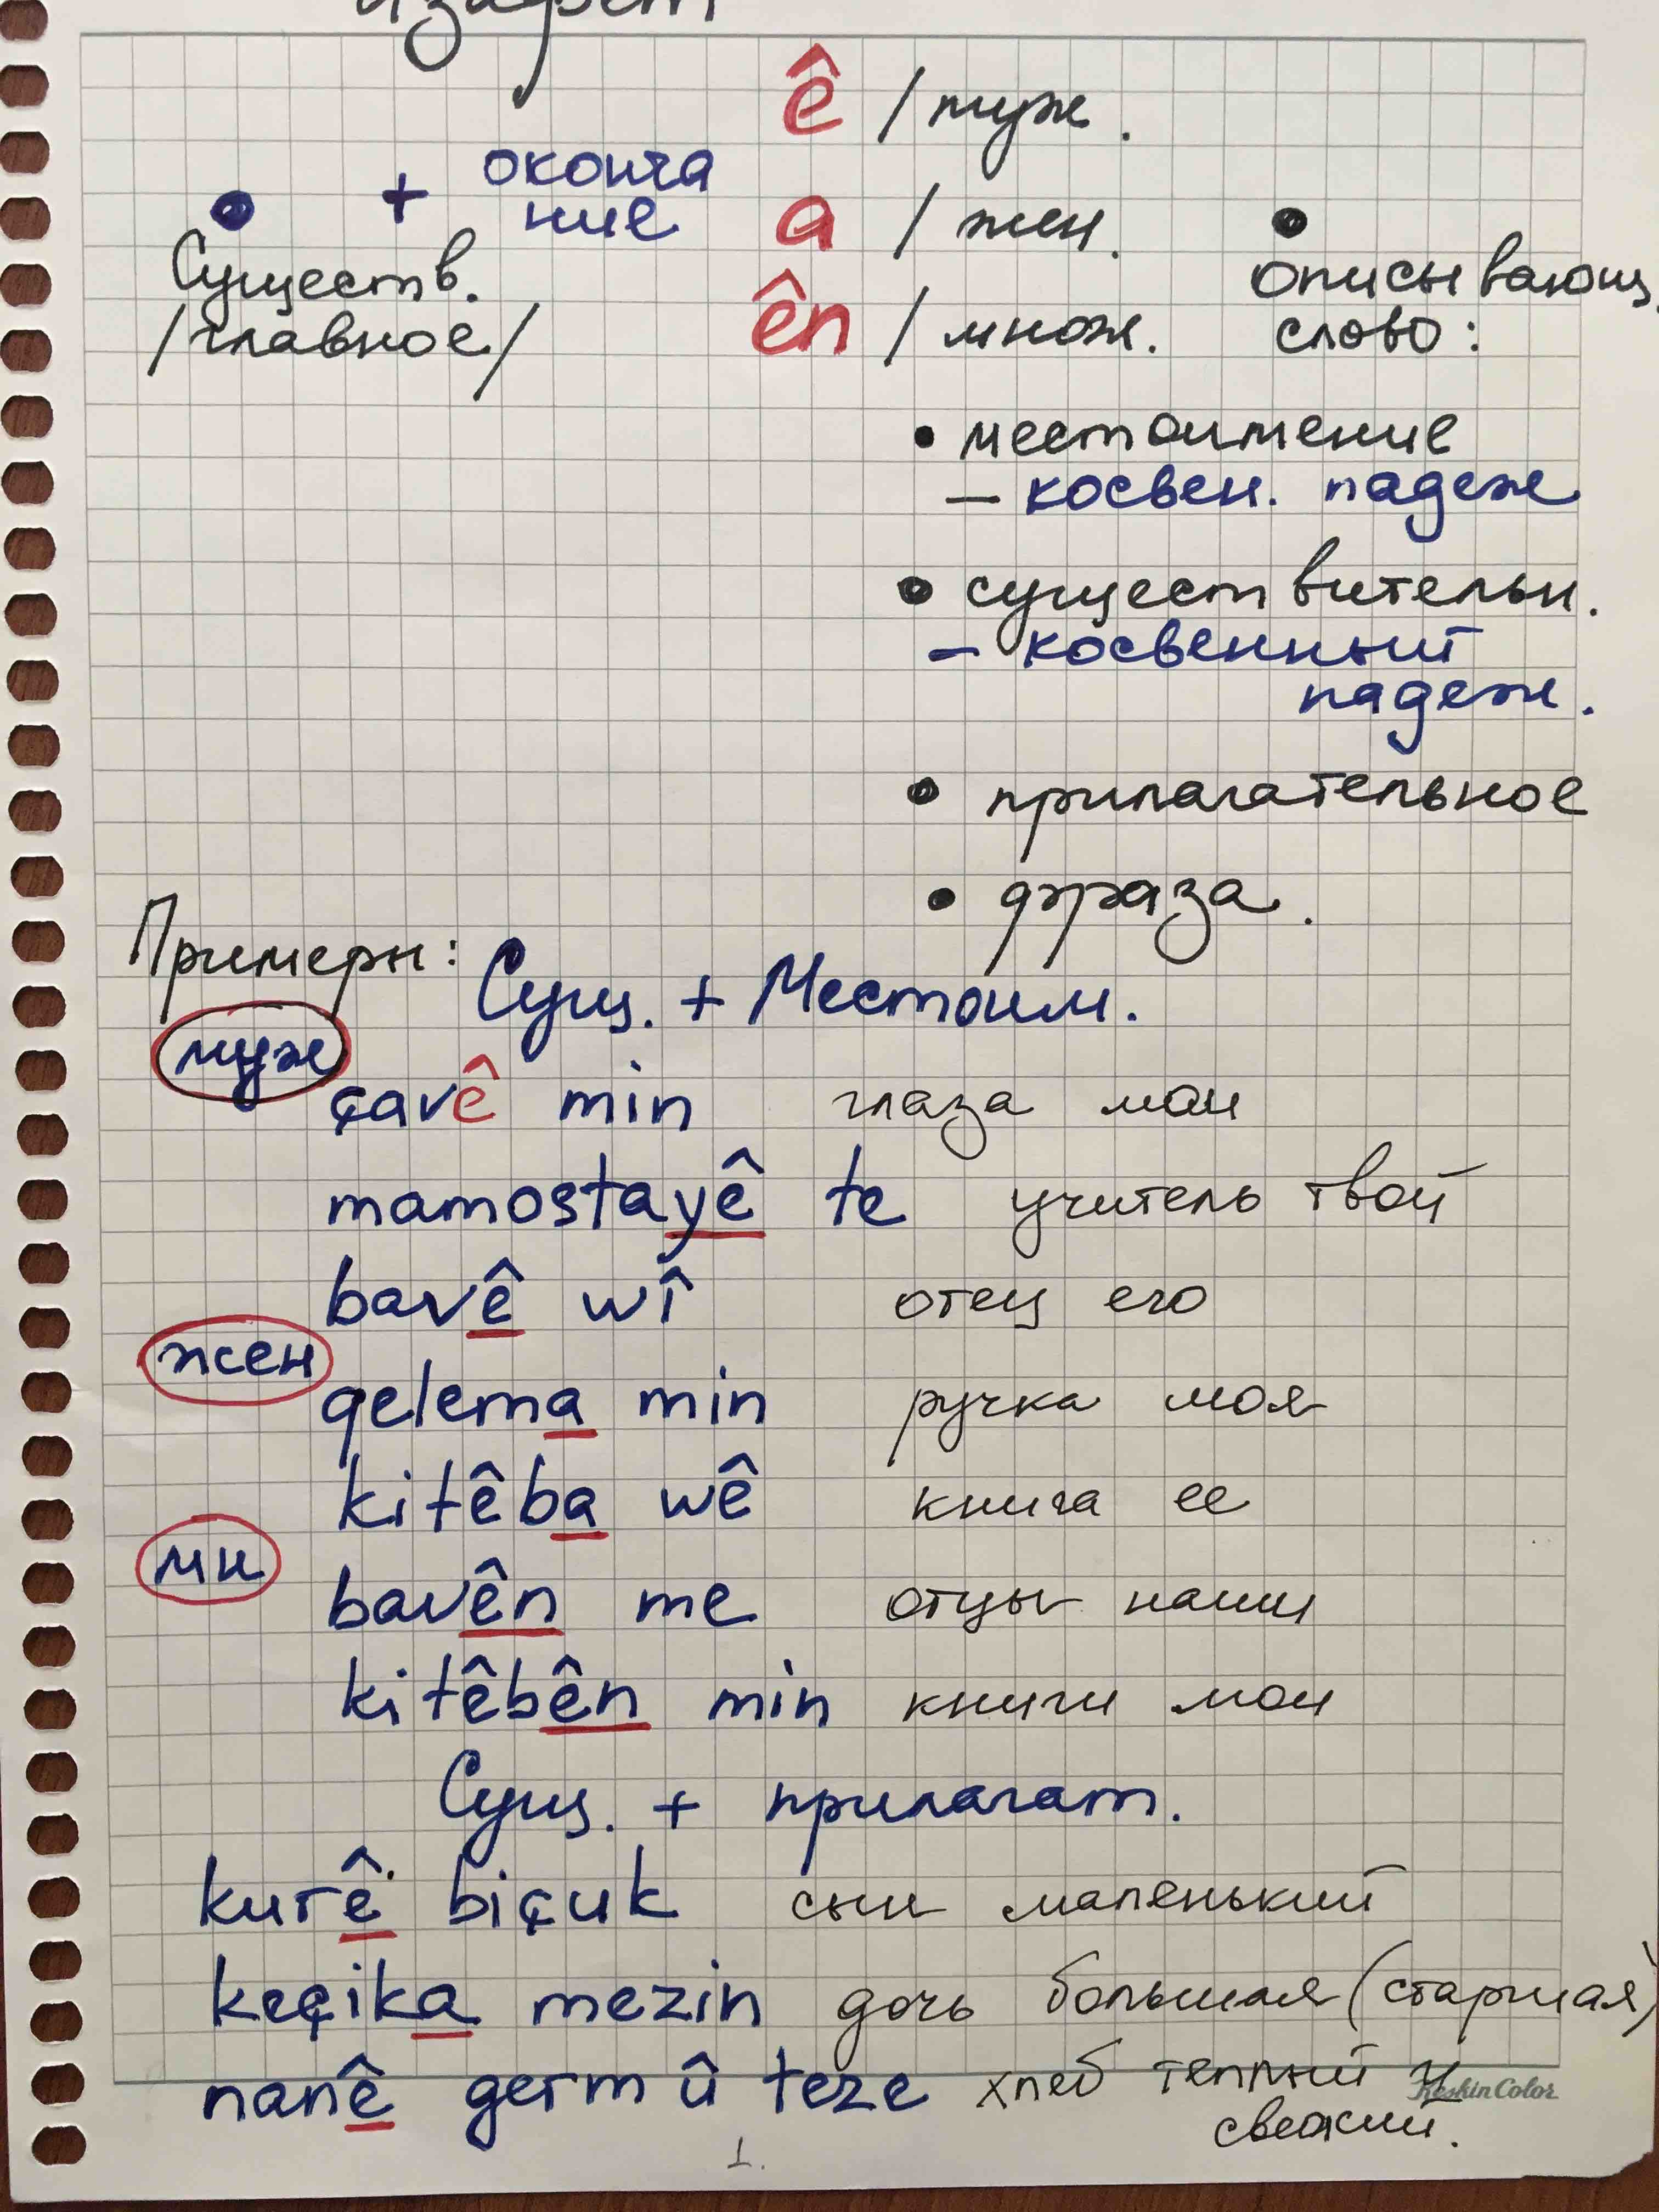 изафет
ê / муж.
• + оконча
ние
a / жен.
•
Существ.
/главное/
ên / множ.
описывающ.
слово:
• местоимение
– косвен. падеж
• существительн.
– косвенный
падеж.
• прилагательное
• фраза.
Примеры:
Сущ. + Местоим.
муж
çavê min глаза мои
mamostayê te учитель твой
bavê wî отец его
жен
qelema min ручка моя
kitêba wê книга ее
мн
bavên me отцы наши
kitêbên min книги мои
Сущ. + прилагат.
kurê biçuk сын маленький
keçika mezin дочь большая (старшая)
nanê germ û teze хлеб теплый и
свежий.
KeskinColor
1.